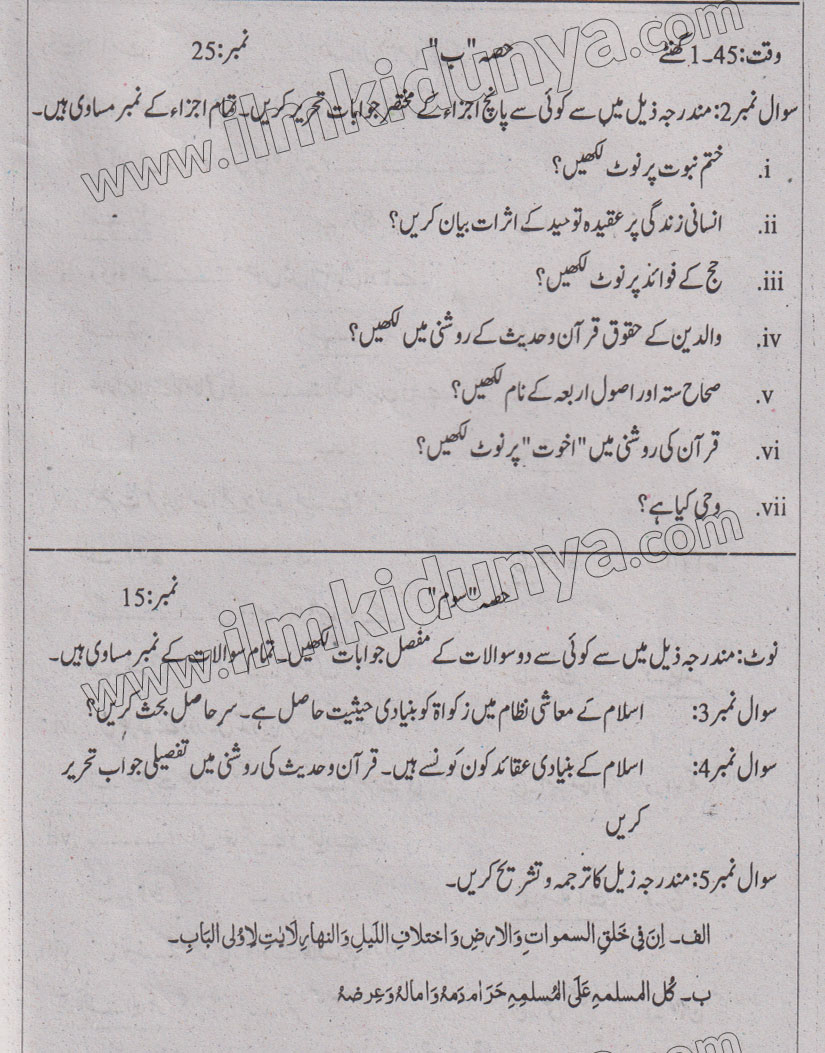 وقت: 45۔1 گھنٹے حصہ "ب" نمبر: 25
سوال نمبر2: مندرجہ ذیل میں سے کوئی سے پانچ اجزاء کے مختصر جوابات تحریر کریں۔ تمام اجزاء کے نمبر مساوی ہیں۔
www.ilmkidunya.com
i. ختم نبوت پر نوٹ لکھیں؟
ii. انسانی زندگی پر عقیدہ توحید کے اثرات بیان کریں؟
iii. حج کے فوائد پر نوٹ لکھیں؟
iv. والدین کے حقوق قرآن وحدیث کے روشنی میں لکھیں؟
v. صحاح ستہ اور اصول اربعہ کے نام لکھیں؟
vi. قرآن کی روشنی میں "اخوت" پر نوٹ لکھیں؟
vii. وحی کیا ہے؟
www.ilmkidunya.com
حصہ "سوم" نمبر: 15
نوٹ: مندرجہ ذیل میں سے کوئی سے دو سوالات کے مفصل جوابات لکھیں۔ تمام سوالات کے نمبر مساوی ہیں۔
سوال نمبر3: اسلام کے معاشی نظام میں زکواۃ کو بنیادی حیثیت حاصل ہے۔ سر حاصل بحث کریں؟
سوال نمبر4: اسلام کے بنیادی عقائد کون کونسے ہیں۔ قرآن وحدیث کی روشنی میں تفصیلی جواب تحریر
کریں
سوال نمبر5: مندرجہ زیل کا ترجمہ و تشریح کریں۔
الف۔ اِنَ فِی خَلقِ السموات وَالارضِ وَاختلافِ اللَیلِ وَالنهارِ لَایٰتِ لِاوُلی البَابِ۔
ب۔ کُل المسلمہِ عَلَی المُسلمِہِ حَرَام دَمَہُ وَامالہُ وَعِرضہُ